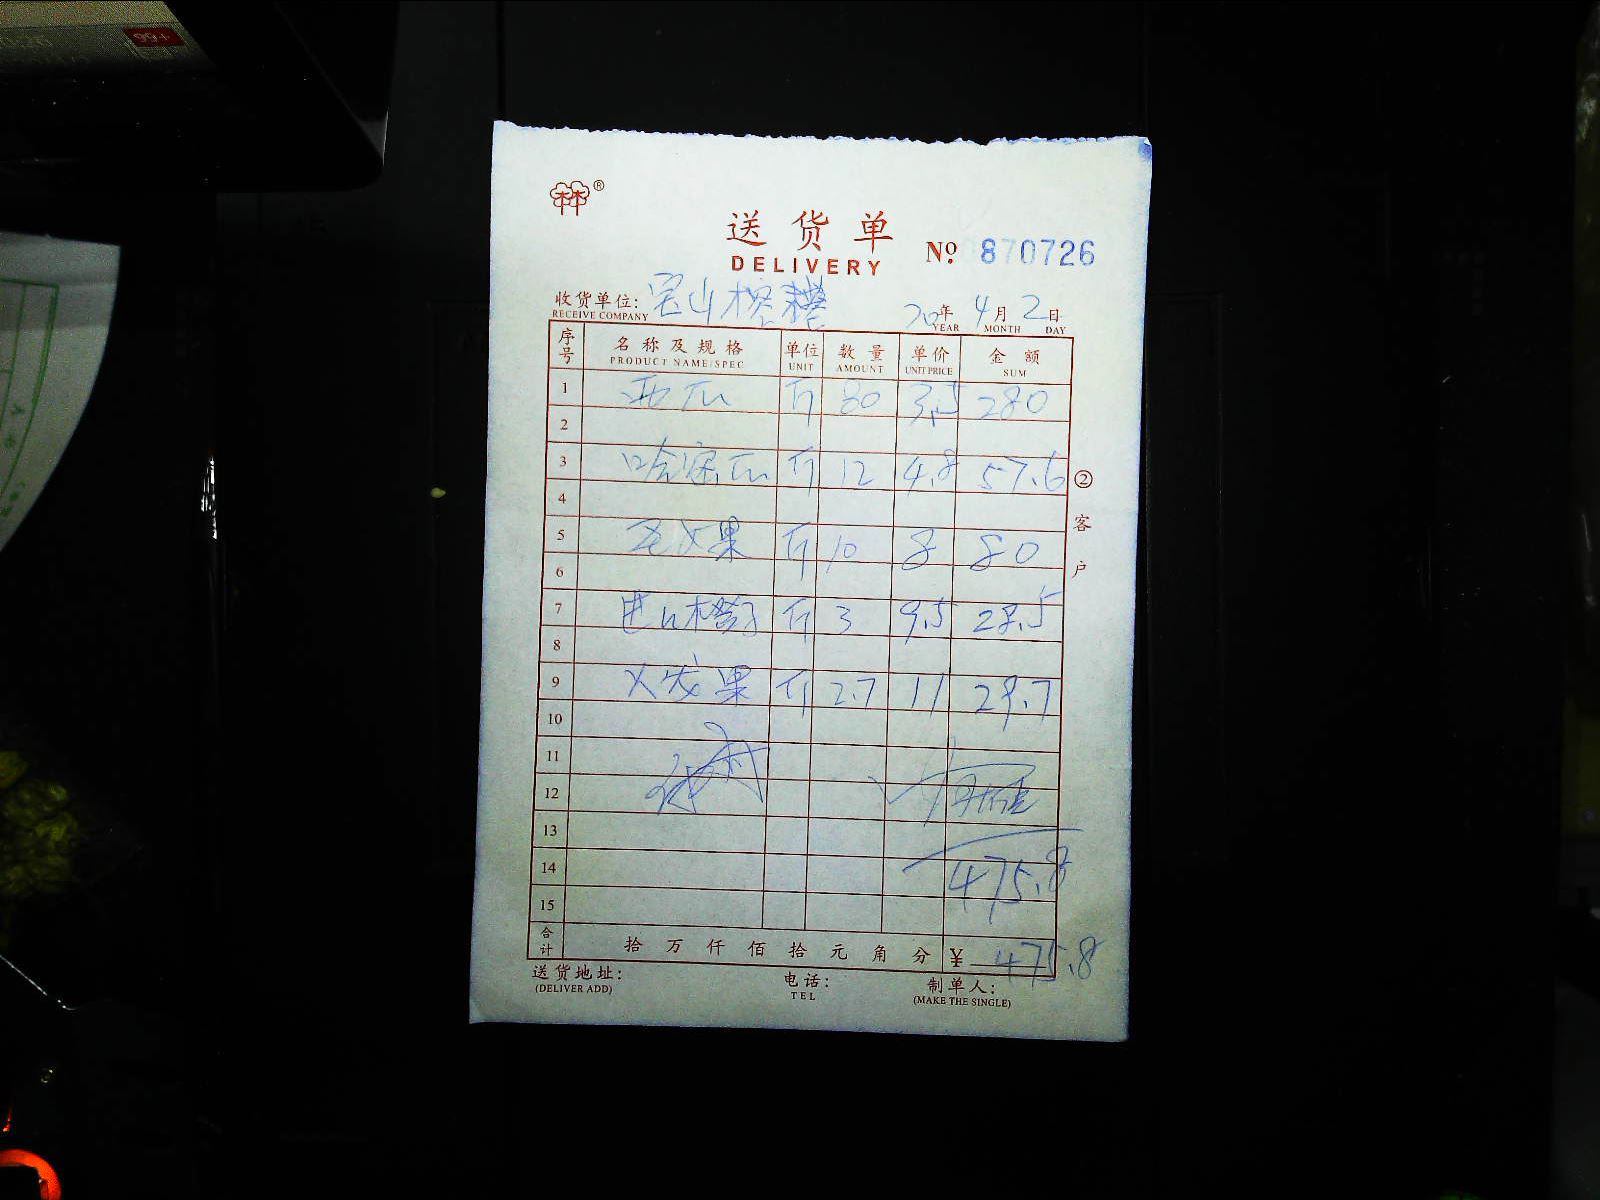 99+
®
送货单
DELIVERY
№ 870726
收货单位: 宝山
RECEIVE COMPANY
20年 4月 2日
YEAR MONTH DAY
序号 名称及规格 单位 数量 单价 金额
PRODUCT NAME/SPEC UNIT AMOUNT UNIT PRICE SUM
1 西瓜 斤 80 3.5 280
2
3 哈密瓜 斤 12 4.8 57.6
4
5 斤 10 8 80
6
7 进口橙子 斤 3 9.5 28.5
8
9 火龙果 斤 2.7 11 29.7
10
11
12
13
14 475.8
15
合计 拾 万 仟 佰 拾 元 角 分 ¥ 475.8
② 客户
送货地址: 电话: 制单人:
(DELIVER ADD) TEL (MAKE THE SINGLE)